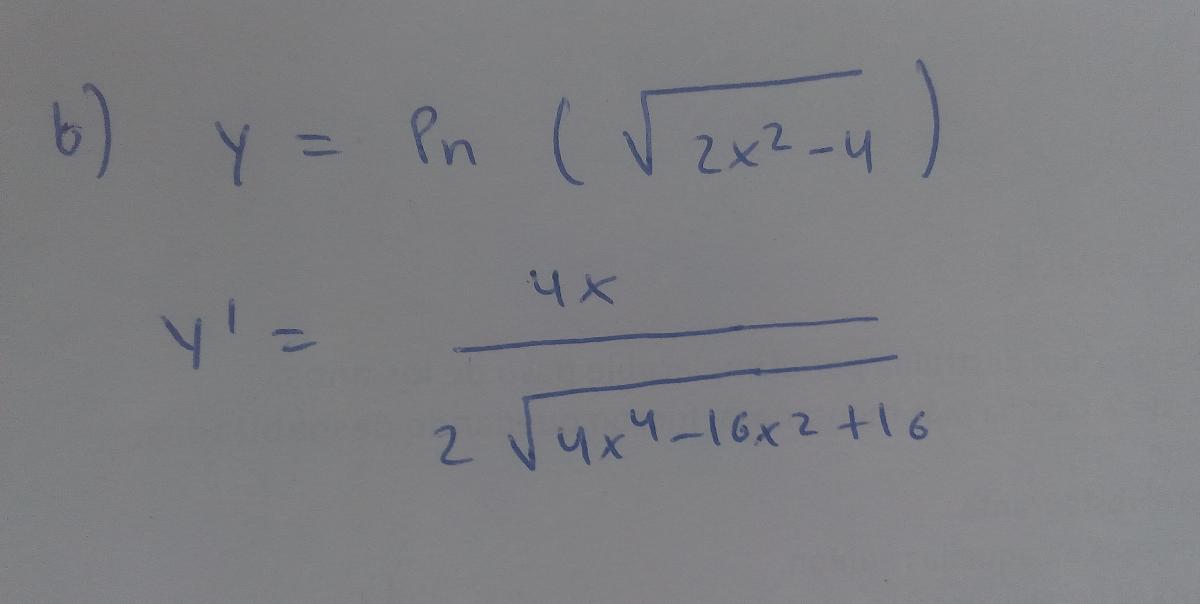 b) y = ln (√(2x²-4))
y' = 4x / (2 √(4x⁴-16x²+16))